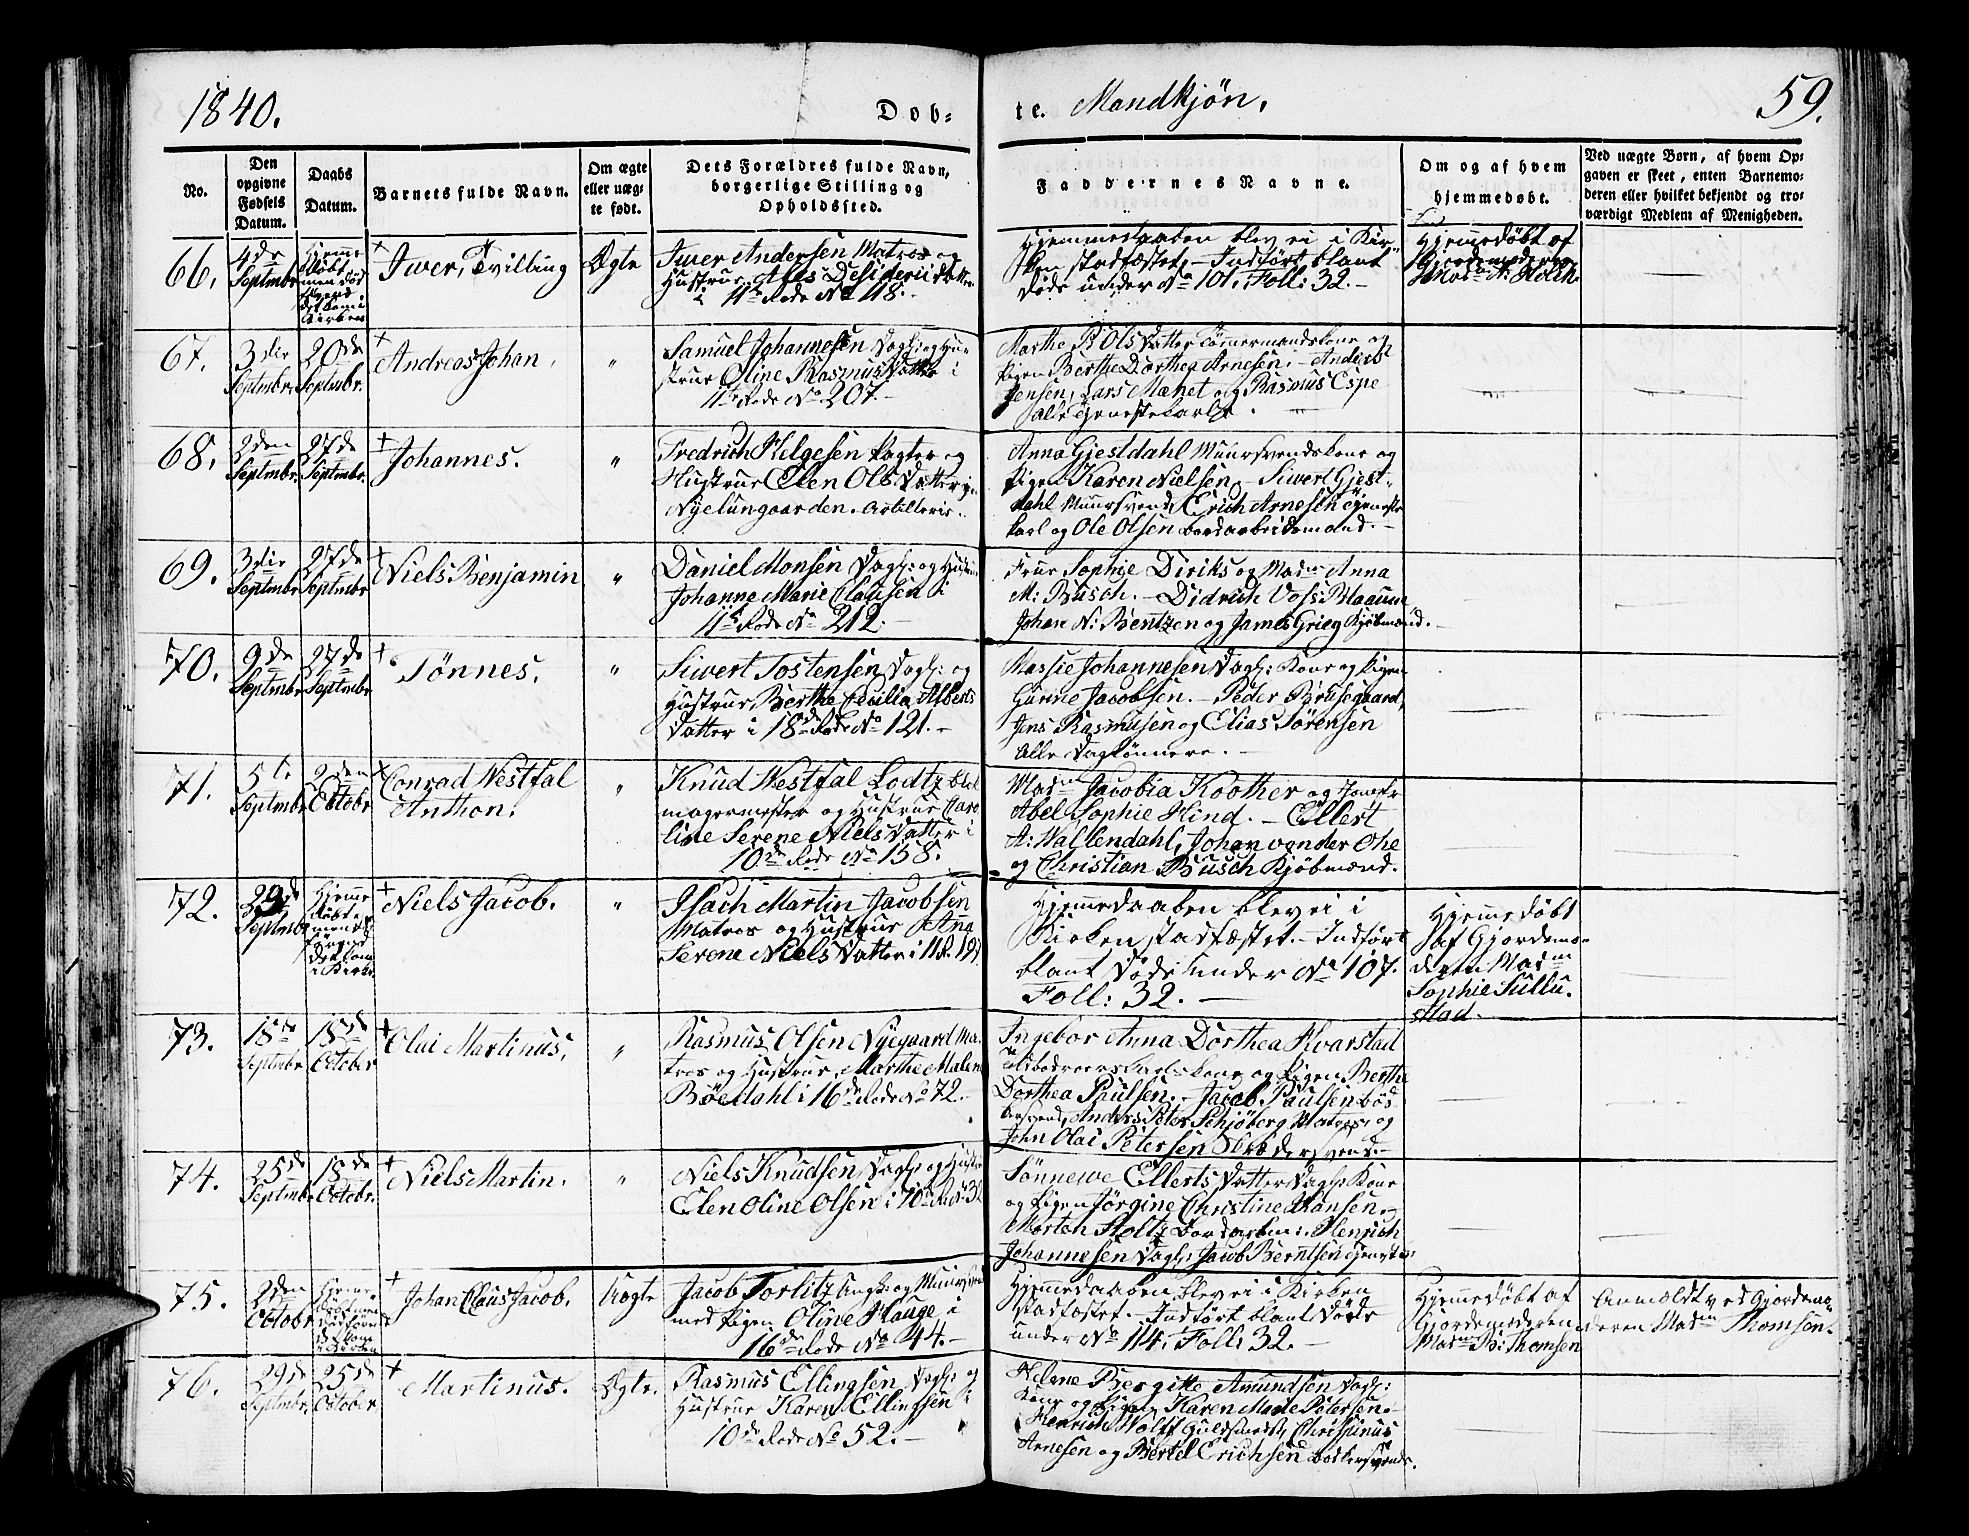 1840.
Dob-
te. Mandkjön.
59.
No.
Den opgivne Fødsels Datum.
Daabs Datum.
Barnets fulde Navn.
Om ægte eller uægte født.
Dets Forældres fulde Navn, borgerlige Stilling og Opholdssted.
Faddernes Navne.
Om og af hvem hjemmedøbt.
Ved uægte Børn, af hvem Opgaven er skeet, enten Barnemoderen eller hvilket bekjendt og troværdigt Medlem af Menigheden.
66.
4de Septmbr.
+ Iwer, Tvilling
Ægte
Iwer Andersen Matros og
Hustrue
i 11te Rode No 118.
Hjemmedaaben blev ei i Kir-
ken stadfæstet - Indført blant
Døde under No 101. Foll: 32. -
Hjemedöbt af
67.
3die Septmbr.
20de Septmbr.
+ Andreas Johan,
"
Samuel Johannesen Dagl: og Hu-
strue Oline RasmusDatter i
11te Rode No 207. -
Marthe B. OlsDatter Tömermandskone og
Pigen Berthe Dorthea Arnesen, - Anders
Jensen, Lars Mæhet og Rasmus Espe
alle Tjenestekarle.
68.
2den Septmbr.
27de Septmbr.
+ Johannes.
"
Fredrich Helgesen Pagter og
Hustrue Elen OlsDatter i
Nyelungaarden. Artillerie.
Anna Gjestdahl Muursvendskone og
Pigen Karen Nielsen, - Siwert Gjest-
dahl Muursvend, Erich Arnesen Tjeneste
karl og Ole Olsen bordarbeidsmand. -
69.
3die Septmbr.
27de Septmbr.
+ Niels Benjamin
"
Daniel Monsen Dagl: og Hustrue
Johanne Marie Clausen i
11te Rode No 212. -
Frue Sophie Diriks og Madm Anna
M: Busch. - Didrich Voss: Blaauw
Johan N: Bentzen og James Grieg Kjöbmænd. -
70.
9de Septmbr.
27de Septmbr.
+ Tönnes.
"
Siwert Tostensen, Dagl: og
Hustrue, Berthe Cecilia Alberts
Datter i 18de Rode No 121. -
Massie Johannesen Dagl: Kone og Pigen
Gunne Jacobsen. - Peder Birkegaard,
Jens Rasmusen og Elias Sörensen
Alle Daglönnere. -
71.
5te Septmbr.
2den Octobr.
+ Conrad Westfal
Anthon.
"
Knud Westfal Lodtz Blik
magermester og Hustrue Caro
line Serene NielsDatter i
10de Rode No 158.
Madm Jacobia Koother og Jomfr
Abel Sophie Kind. - Ellert
A: Wallendahl, Johan von der Ohe
og Christian Busch Kjöbmænd.
72.
29de Septmbr.
+ Niels Jacob.
"
Isach Martin Jacobsen
Matros og Hustrue Ane
Serene NielsDatter i 11 R. 197
Hjemedaaben blev ei i
Kirken stadfæstet. - Indført
blant Døde under No 107.
Foll: 32. -
Hjemedöbt
af Gjordemo-
deren Madm
Sophie Sullu-
stad.
73.
18de Septmbr.
18de October
+ Olai Martinus,
"
Rasmus Olsen Nyegaard Ma-
tros og Hustrue, Marthe Malene
Böedahl i 16de Rode No 72. -
Ingebor Anna Dorthea Kvarstad
Kone og Pigen Berthe
Dorthea Paulsen. - Jacob Paulsen bös-
svend, Anders Peter Schjöberg Matros, og
John Olai Petersen Skrædersvend. -
74.
25de Septmbr.
18de Octobr.
+ Niels Martin.
"
Niels Knudsen, Dagl: og Hustrue
Elen Oline Olsen i 10de Rode 32
Sönnewe EllertsDatter Dagl: Kone
og Pigen Jörgine Christine Hansen, -
Morten Holtz bordarbm: Henrich
Johannesen Dagl: Jacob Berntsen
75.
2den Octobr.
+ Johan Claus Jacob.
Uægte
Jacob Torlitz Ungk: og
med Pigen Oline Hauge i
16de Rode No 44. -
Hjemmedaaben blev ei i Kirken
stadfæstet. - Indført blant Döde
under No 114. Foll: 32. -
Hjemedöbt af
Gjordemoderen
Madm B: Thomsen
Anmeldt ved Gjordemo-
deren Madm Thomsen.
76.
29de Septmbr.
25de October
+ Martinus.
Ægte.
Rasmus Ellingsen, Dagl: og
Hustrue Karen Ellingsen i
10de Rode No 52. -
Helene Bergitte Amundsen Dagl:
Kone og Pigen Karen Marie Petersen. -
Henrich Wolff Guldsmedsv, Christinus
Arnesen og Bertel Erichsen Bödkersvende.